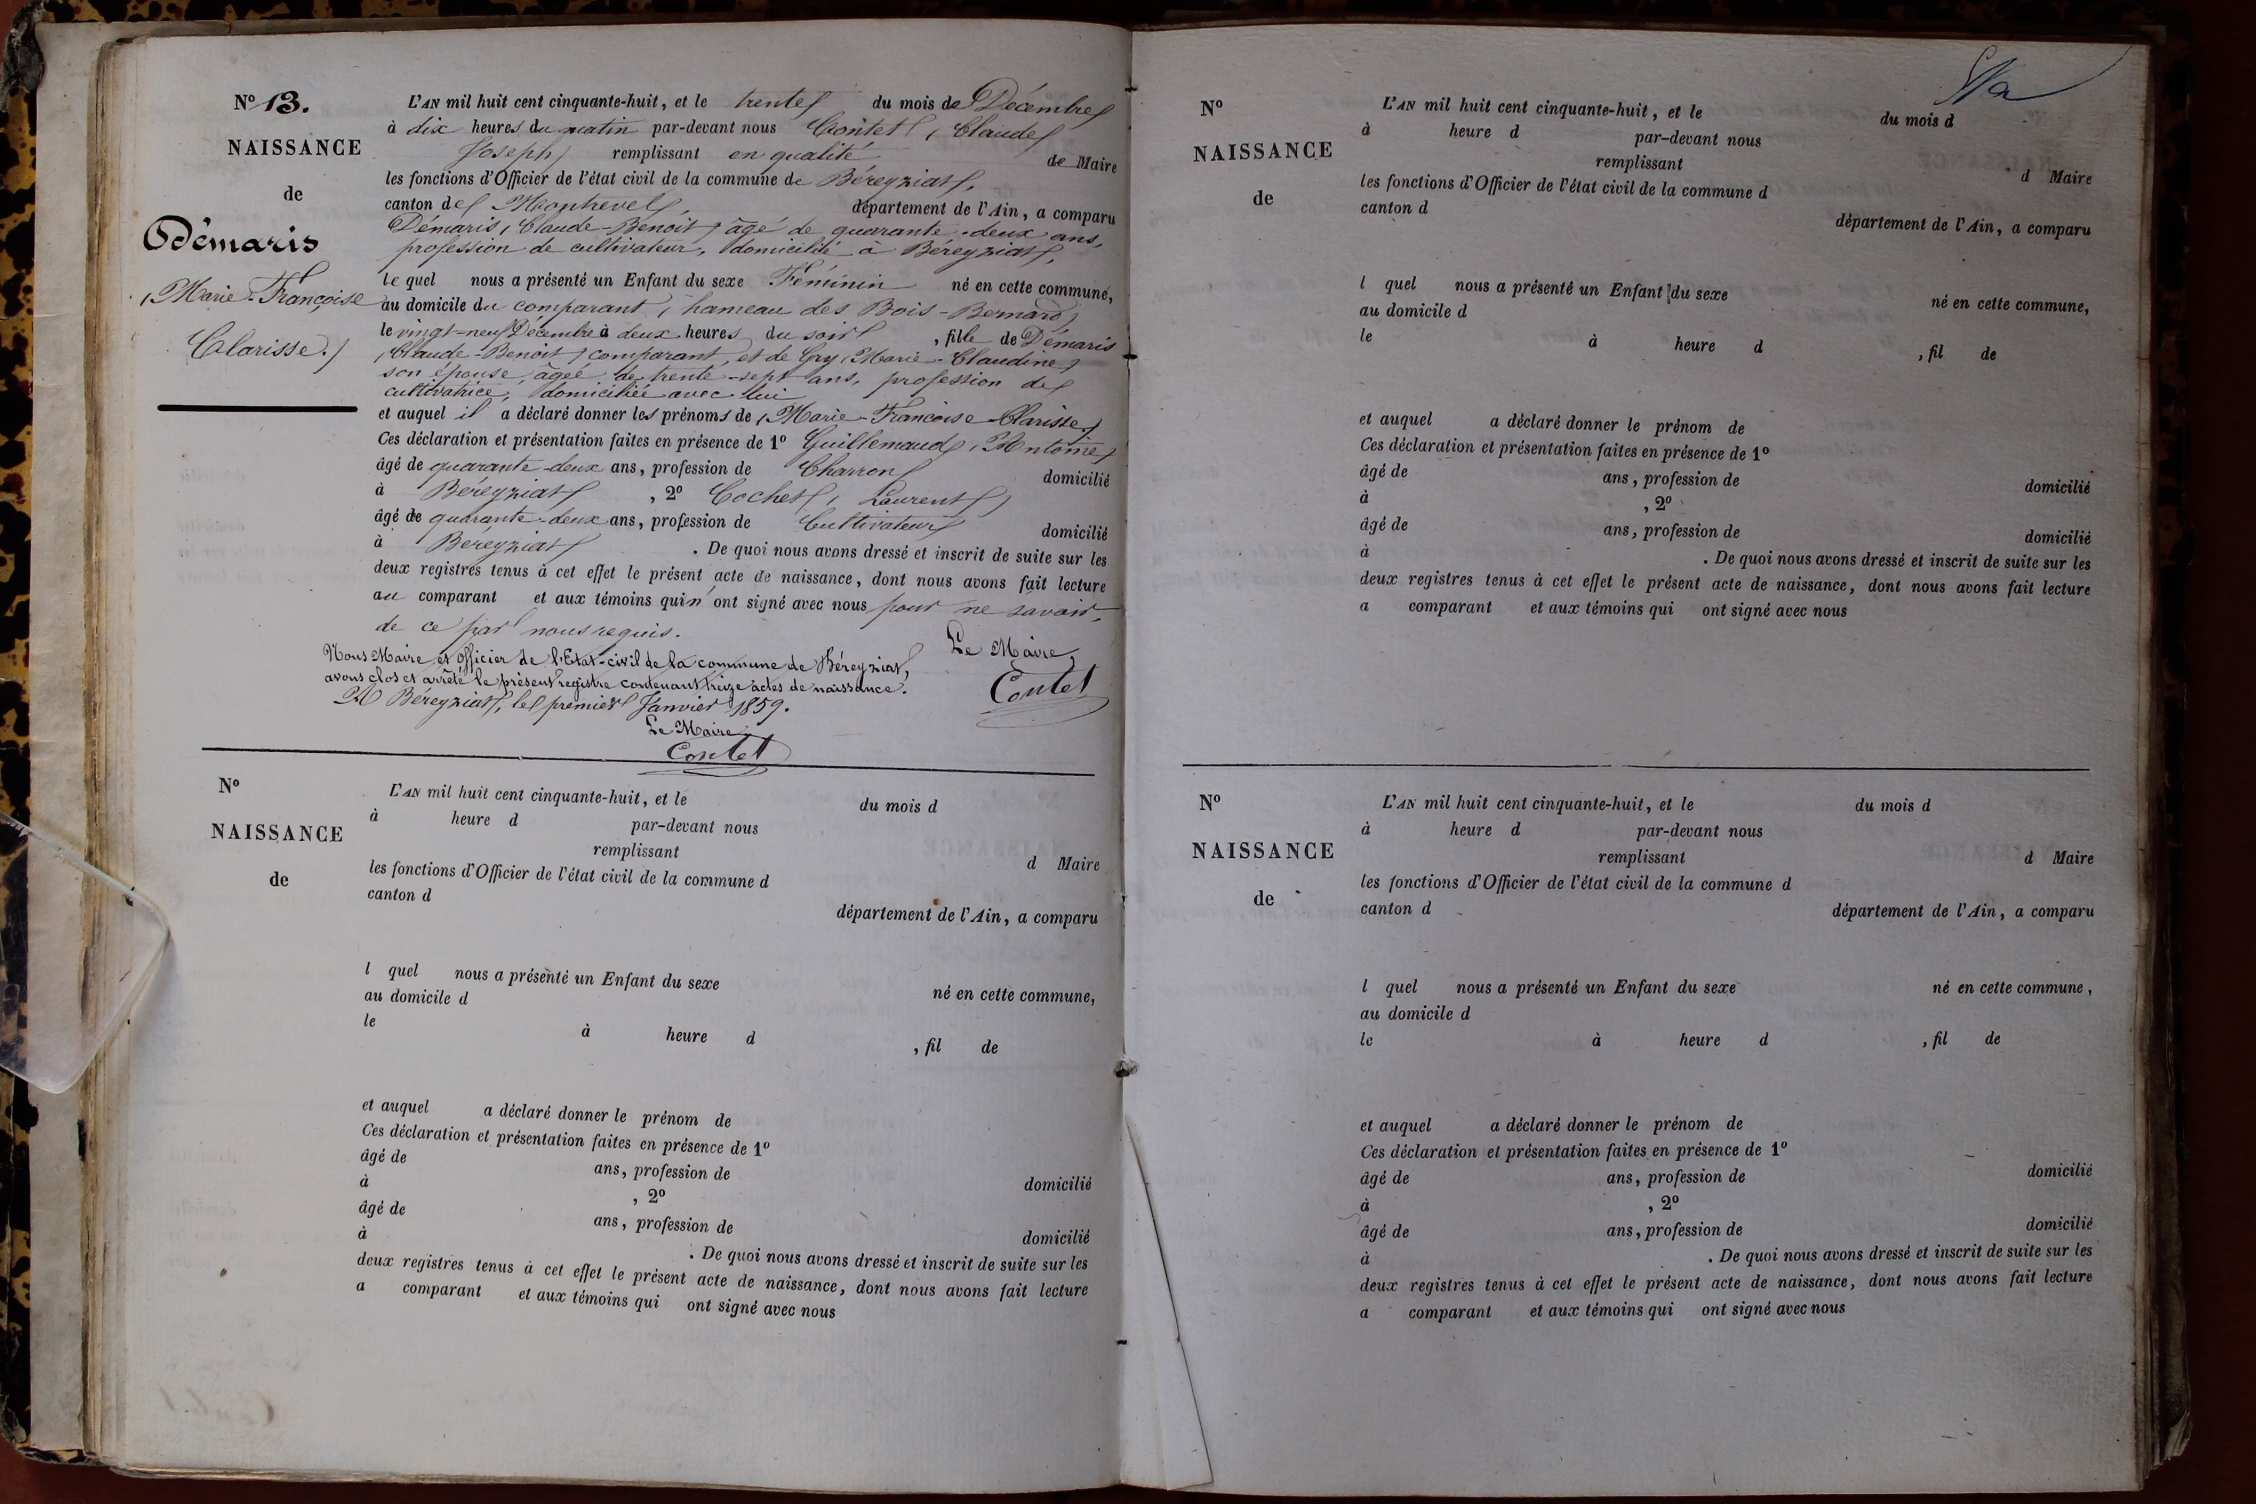 N° 13.
NAISSANCE
de
Démaris
(Marie-Françoise
Clarisse.)
L'AN mil huit cent cinquante-huit, et le trente du mois de Décembre
à dix heures du matin par-devant nous Contet (Claude
Joseph) remplissant en qualité de Maire
les fonctions d'Officier de l'état civil de la commune de Béreyziat,
canton de Montrevel, département de l'Ain, a comparu
Démaris (Claude-Benoit) âgé de quarante-deux ans,
profession de cultivateur, domicilié à Béreyziat,
lequel nous a présenté un Enfant du sexe Féminin né en cette commune,
au domicile du comparant, hameau des Bois-Bernard,
le vingt-neuf Décembre à deux heures du soir, fille de Démaris
(Claude-Benoit) comparant, et de Gry (Marie-Claudine)
son épouse, âgée de trente-sept ans, profession de
cultivatrice, domiciliée avec lui
et auquel il a déclaré donner les prénoms de (Marie-Françoise-Clarisse.)
Ces déclaration et présentation faites en présence de 1° Guillemaud (Antoine)
âgé de quarante-deux ans, profession de Charron domicilié
à Béreyziat, 2° Cochet (Laurent)
âgé de quarante-deux ans, profession de Cultivateur domicilié
à Béreyziat. De quoi nous avons dressé et inscrit de suite sur les
deux registres tenus à cet effet le présent acte de naissance, dont nous avons fait lecture
au comparant et aux témoins qui n'ont signé avec nous pour ne savoir,
de ce par nous requis.
Le Maire,
Contet
Nous Maire et officier de l'Etat-civil de la commune de Béreyziat,
avons clos et arrêté le présent registre contenant treize actes de naissance.
A Béreyziat, le premier Janvier 1859.
Le Maire
Contet
N°
NAISSANCE
de
L'AN mil huit cent cinquante-huit, et le du mois d
à heure d par-devant nous
remplissant d Maire
les fonctions d'Officier de l'état civil de la commune d
canton d département de l'Ain, a comparu
l quel nous a présenté un Enfant du sexe né en cette commune,
au domicile d
le à heure d , fil de
et auquel a déclaré donner le prénom de
Ces déclaration et présentation faites en présence de 1°
âgé de ans, profession de domicilié
à , 2°
âgé de ans, profession de domicilié
à . De quoi nous avons dressé et inscrit de suite sur les
deux registres tenus à cet effet le présent acte de naissance, dont nous avons fait lecture
a comparant et aux témoins qui ont signé avec nous
N°
NAISSANCE
de
L'AN mil huit cent cinquante-huit, et le du mois d
à heure d par-devant nous
remplissant d Maire
les fonctions d'Officier de l'état civil de la commune d
canton d département de l'Ain, a comparu
l quel nous a présenté un Enfant du sexe né en cette commune,
au domicile d
le à heure d , fil de
et auquel a déclaré donner le prénom de
Ces déclaration et présentation faites en présence de 1°
âgé de ans, profession de domicilié
à , 2°
âgé de ans, profession de domicilié
à . De quoi nous avons dressé et inscrit de suite sur les
deux registres tenus à cet effet le présent acte de naissance, dont nous avons fait lecture
a comparant et aux témoins qui ont signé avec nous
N°
NAISSANCE
de
L'AN mil huit cent cinquante-huit, et le du mois d
à heure d par-devant nous
remplissant d Maire
les fonctions d'Officier de l'état civil de la commune d
canton d département de l'Ain, a comparu
l quel nous a présenté un Enfant du sexe né en cette commune,
au domicile d
le à heure d , fil de
et auquel a déclaré donner le prénom de
Ces déclaration et présentation faites en présence de 1°
âgé de ans, profession de domicilié
à , 2°
âgé de ans, profession de domicilié
à . De quoi nous avons dressé et inscrit de suite sur les
deux registres tenus à cet effet le présent acte de naissance, dont nous avons fait lecture
a comparant et aux témoins qui ont signé avec nous